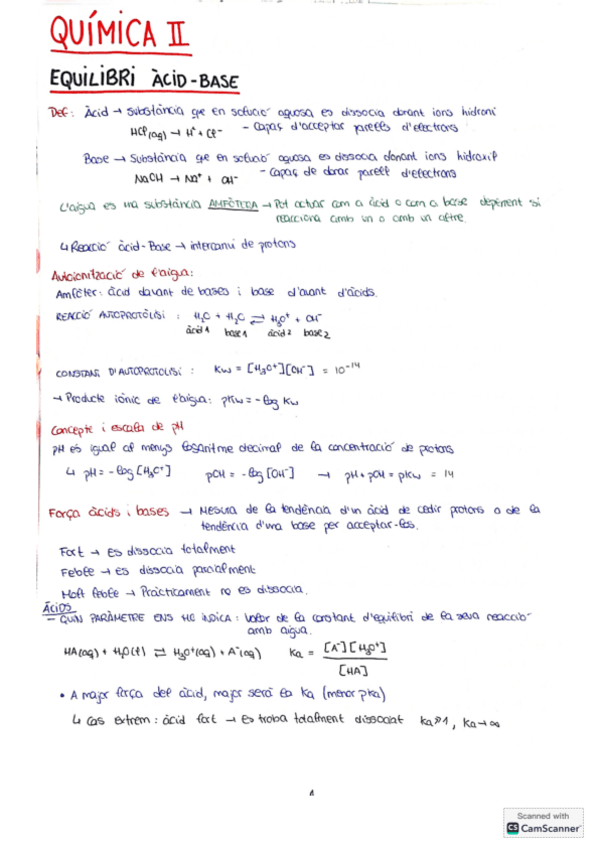 QUÍMICA II
EQUILIBRI ÀCID-BASE
Def: Àcid → substància que en solució aquosa es dissocia donant ions hidroni
HCl(aq) → H⁺ + Cl⁻ - Capaç d'acceptar parells d'electrons
Base → Substància que en solució aquosa es dissocia donant ions hidroxil
NaOH → Na⁺ + OH⁻ - Capaç de donar parell d'electrons
L'aigua es una substància AMFÒTERA → Pot actuar com a àcid o com a base depenent si
reacciona amb un o amb un altre.
↳ Reacció àcid-Base → intercanvi de protons
Autoionització de l'aigua:
Amfòter: àcid davant de bases i base davant d'àcids.
REACCIÓ AUTOPROTÒLISI : H₂O + H₂O ⇌ H₃O⁺ + OH⁻
àcid 1 base 1 àcid 2 base 2
CONSTANT D'AUTOPROTOLISI : Kw = [H₃O⁺][OH⁻] = 10⁻¹⁴
→ Producte iònic de l'aigua: pKw = -log Kw
Concepte i escala de pH
pH és igual al menys logaritme decimal de la concentració de protons
↳ pH = -log [H₃O⁺] pOH = -log [OH⁻] → pH + pOH = pKw = 14
Força àcids i bases → Mesura de la tendència d'un àcid de cedir protons o de la
tendència d'una base per acceptar-los.
Fort → es dissocia totalment
Feble → es dissocia parcialment
Molt feble → Pràcticament no es dissocia.
ÀCIDS
- QUIN PARÀMETRE ENS HO INDICA : Valor de la constant d'equilibri de la seva reacció
amb aigua.
HA(aq) + H₂O(l) ⇌ H₃O⁺(aq) + A⁻(aq) Ka = [A⁻][H₃O⁺]
[HA]
• A major força del àcid, major serà la Ka (menor pKa)
↳ Cas extrem : àcid fort → es troba totalment dissociat Ka≫1, Ka→∞
1
Scanned with
CS CamScanner